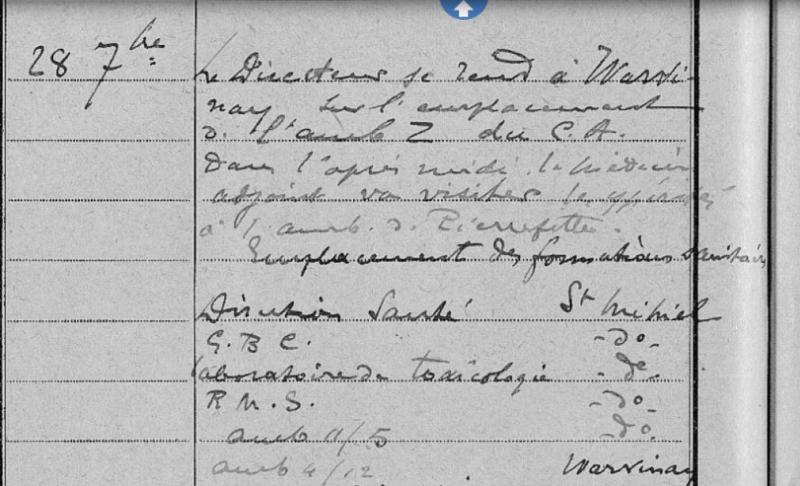 28 7bre
Le Directeur se rend à Warvi-
nay sur l'emplacement
d. l'amb Z du C. A.
Dans l'après midi, le Médecin
adjoint va visiter le
à l'amb. d. Pierrefitte.
Emplacement des formations sanitaires
Direction Santé St Mihiel
G. B. C. - do -
Laboratoire de toxicologie - do -
R M. S. - do -
amb 11/5 - do -
amb 4/12 Warvinay